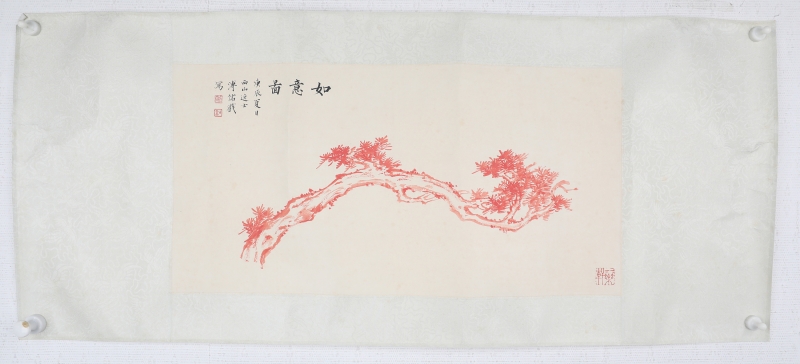 如意啚
庚辰夏日
西山逸士
溥儒戲
写